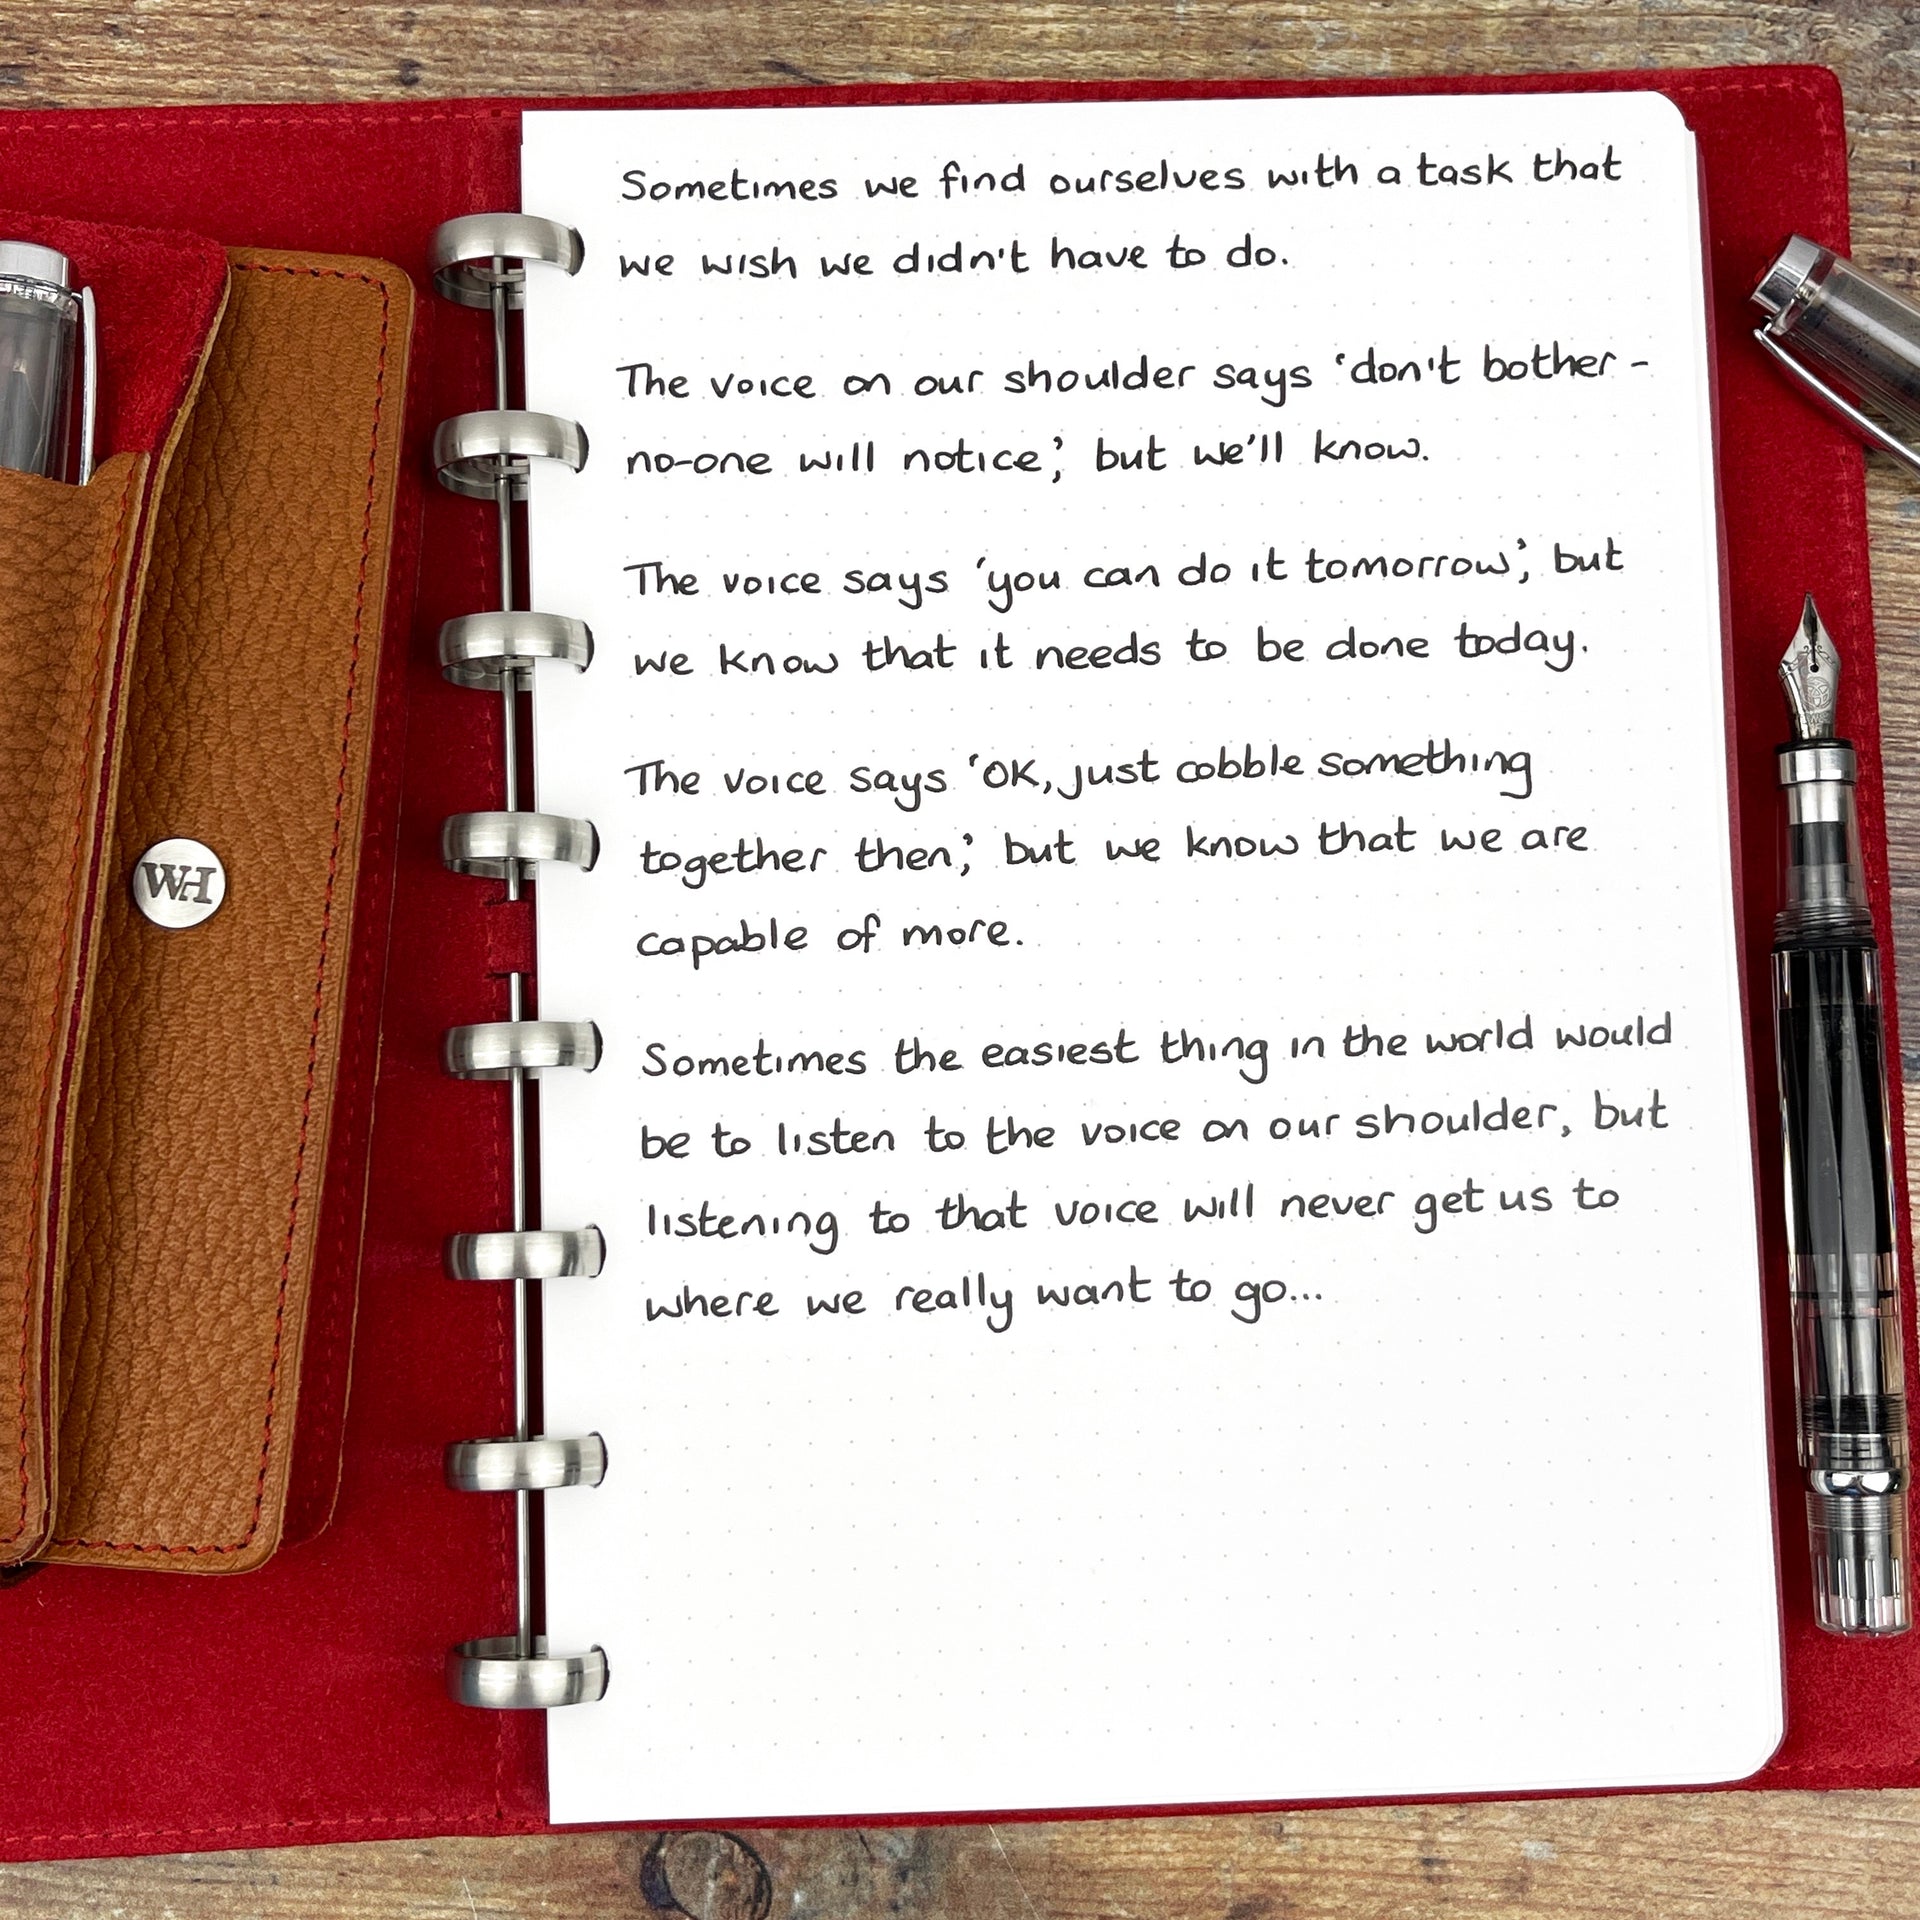 Sometimes we find ourselves with a task that
we wish we didn't have to do.
The voice on our shoulder says 'don't bother -
no-one will notice', but we'll know.
The voice says 'you can do it tomorrow', but
we know that it needs to be done today.
The voice says 'OK, just cobble something
together then', but we know that we are
capable of more.
Sometimes the easiest thing in the world would
be to listen to the voice on our shoulder, but
listening to that voice will never get us to
where we really want to go...
WH